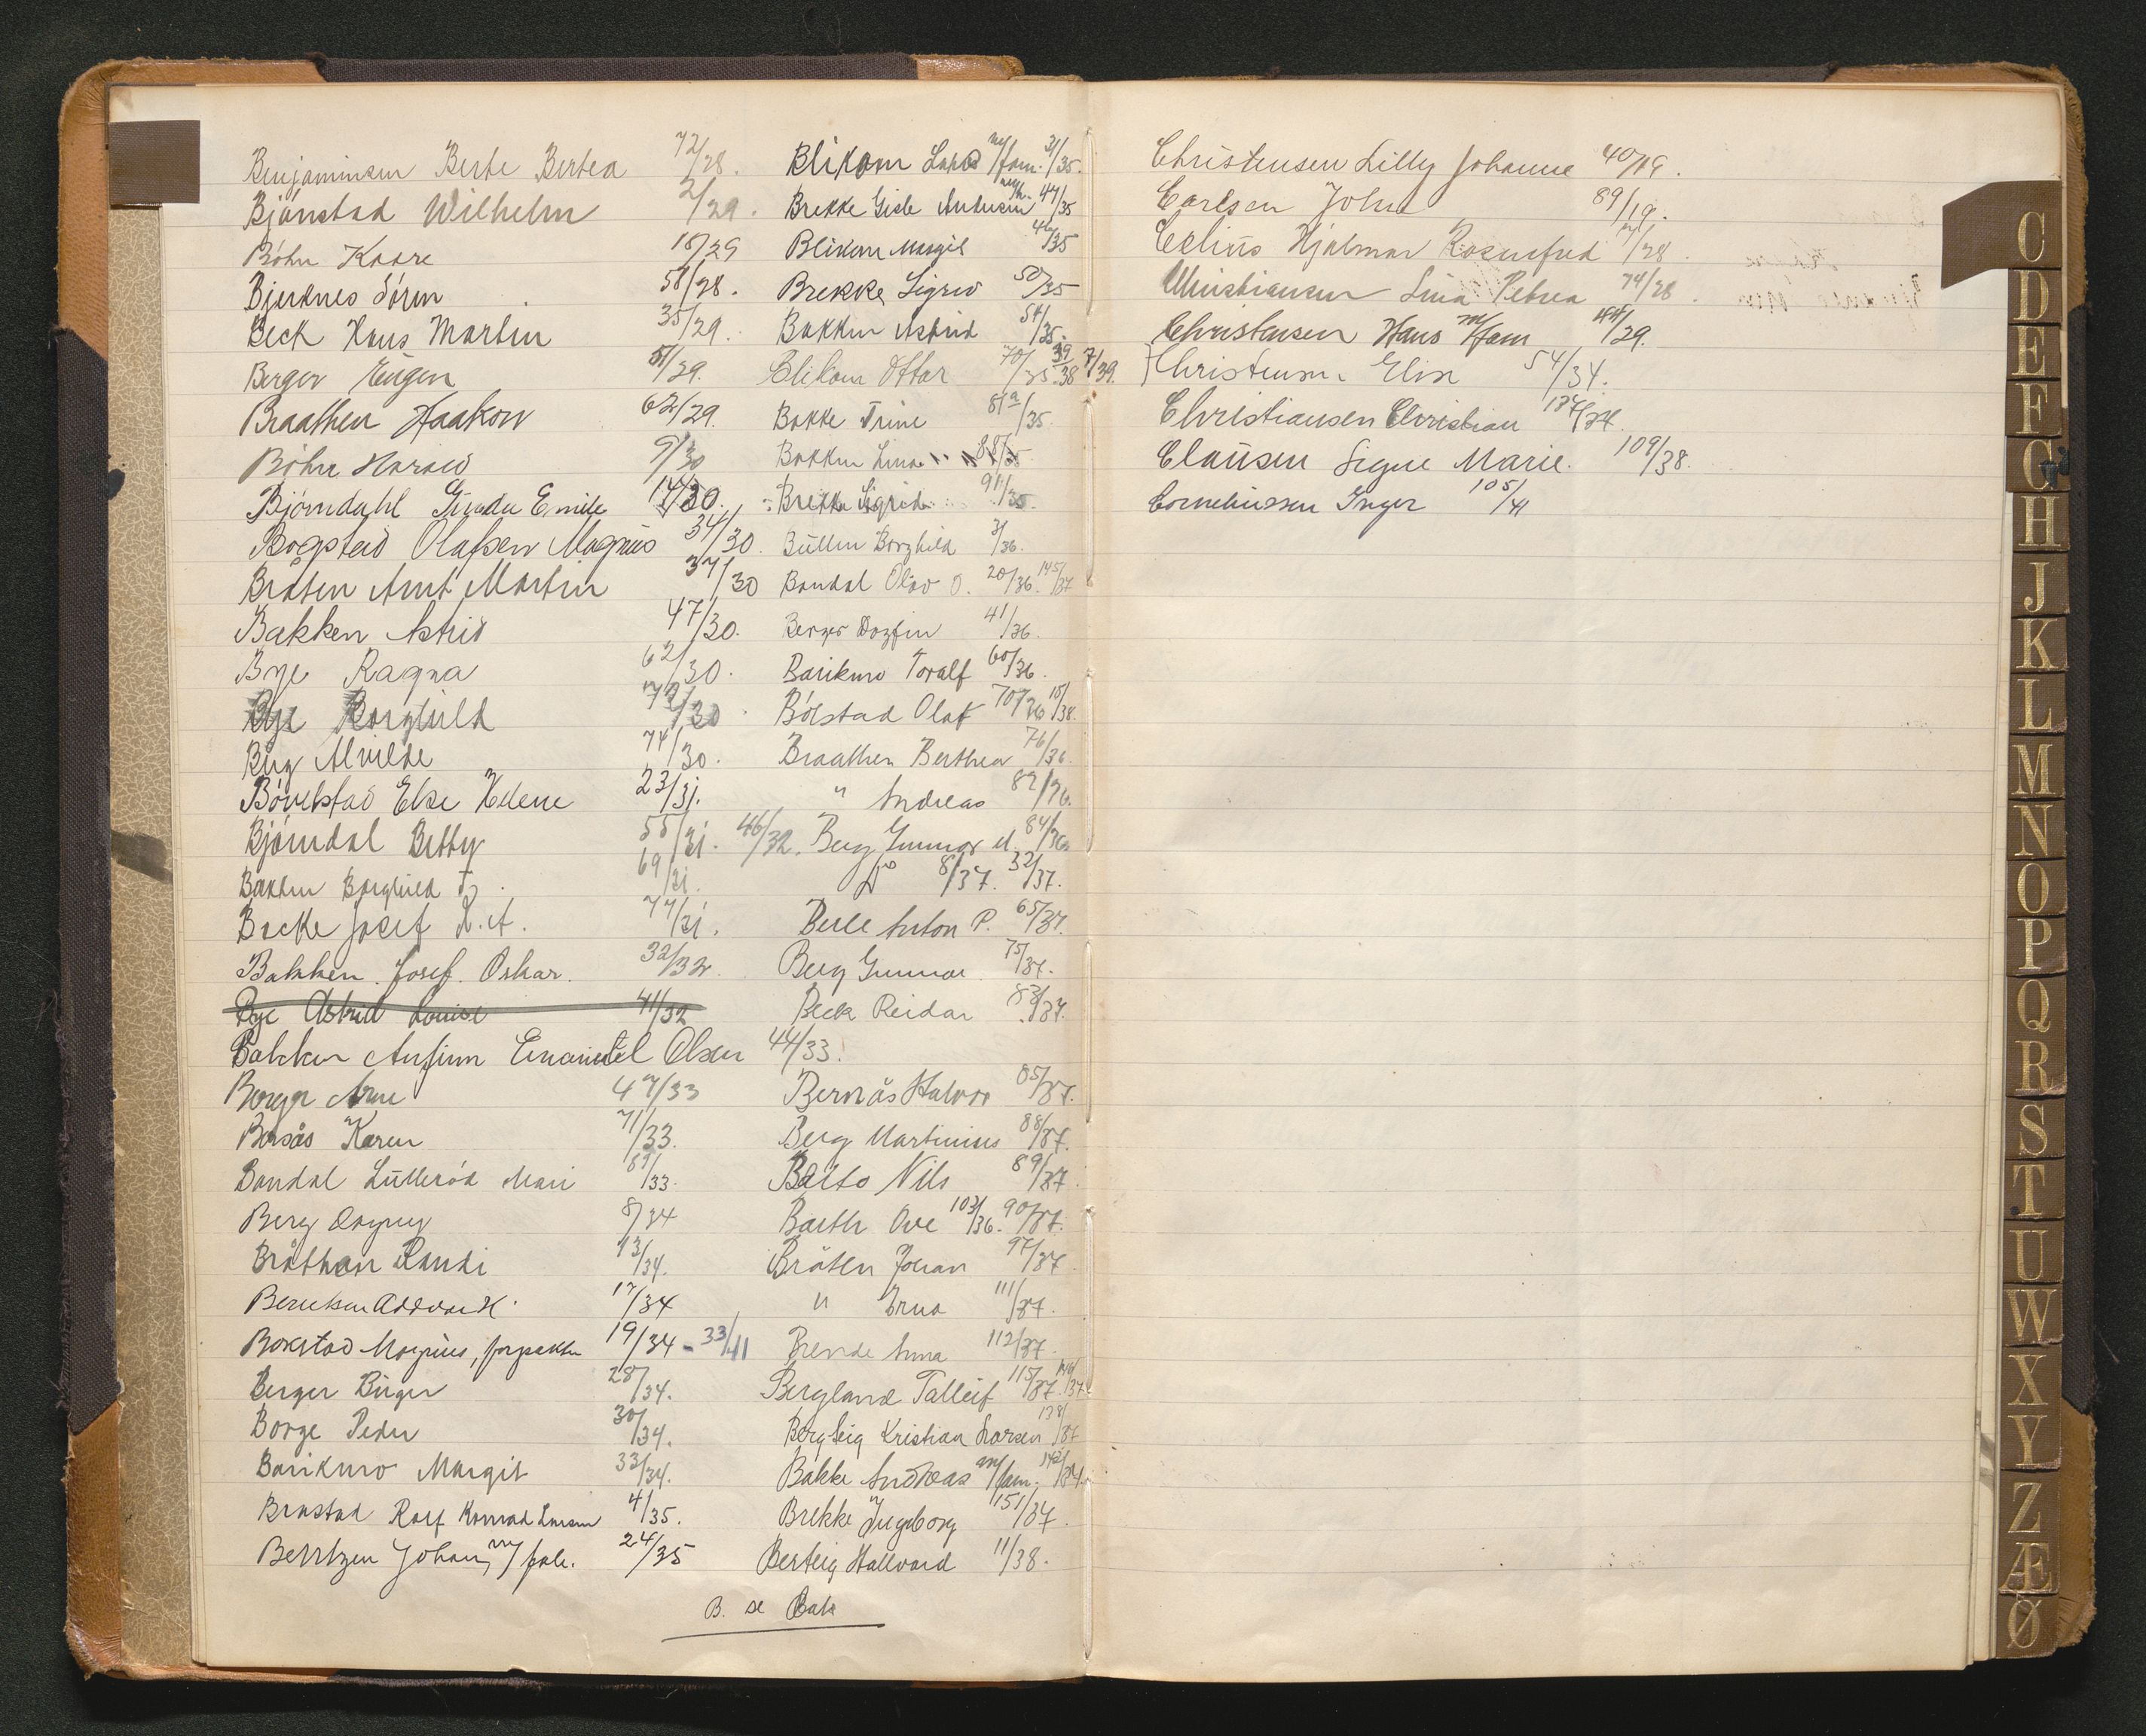 Benjaminsen Berte Bertea 72/28.
Bjönstad Wilhelm 2/29.
Böhn Kaare 18/29
Bjerknes Sören 58/28.
Beck Hans Martin 35/29.
Berger Eugen 51/29.
Braathen Haakon 62/29.
Böhn Harald 9/30
Björndahl Emilie 14/30.
Bogstad Olafsen Magnus 34/30.
Bråten Arnt Martin 37/30
Bakken Astrid 47/30.
Bye Ragna 62/30.
Bye Borghild 72/30
Alvilde 74/30.
Bövelstad Else Helene 23/31.
Björndal Betty 55/31. 46/32.
Bakken Borghild 69/31.
Backe Josef 77/31.
Bakken Josef Oskar. 32/32
Bye Astrid Louise 41/32
Bakken Anfinn Emanuel Olsen 44/33.
Berger Arne 47/33
Bersås Karen 71/33.
Bandal Lulleröd Mari /33.
Berg Dagny 8/34
Bråthen Randi 13/34.
17/34
Bokstad Magnus, 19/34 - 33/41
Berger Birger 28/34.
Borge Peder 30/34.
Barikmo Margit 33/34.
Brustad Rolf Konrad Larsen 4/35.
Berntzen Johan, m/ 24/35
Blikom m/fam. 31/35.
Brekke Gisle Andersen 44/35
Blikom Margit 46/35
Brekke Sigrid 50/35
Bakken Astrid 54/35.
Blikom Ottar 70/35. 39/38 7/39.
Bakke Trine 81a/35.
Bakken Lina 88/35.
Brekke Sigrid 91/35.
Büllen Borghild 3/36.
Bandal Olav O. 20/36. 145/37
Berger Dagfin 41/36.
Barikmo Toralf 60/36.
Bölstad Olaf 70/36 18/38.
Braathen Berthea 76/36.
" Andreas 82/36.
Berg Gunnar M. 84/36
Do 8/37. 32/37.
Berle Anton P. 65/37.
Berg Gunnar 75/37.
Beck Reidar 83/37.
Bernås Halvor 85/37.
Berg Martinius 88/37.
Balto Nils 89/37.
Barth Ove 103/36. 90/37.
Bråten Johan 97/37
" Erna 111/37.
Brende Anna 112/37.
Bergland Talleif 115/37.
Kristian Larsen 138/37
Bakke Andreas m/fam. 142/37.
Brekke Ingeborg 151/37.
Berteig Hallvard 11/38.
B. se
Christensen Lilly Johanne 40/19.
Carlsen Johs 89/19.
Celius Hjalmar /28.
Christiansen Lina Petrea 74/28.
Christensen Hans m/fam 44/29.
Christensen Elise 54/34.
Christiansen Christian
Clausen Signe Marie. 109/38.
Corneliussen Inger 105/41
C
D
E
F
G
H
J
K
L
M
N
O
P
Q
R
S
T
U
W
X
Y
Z
Æ
Ø